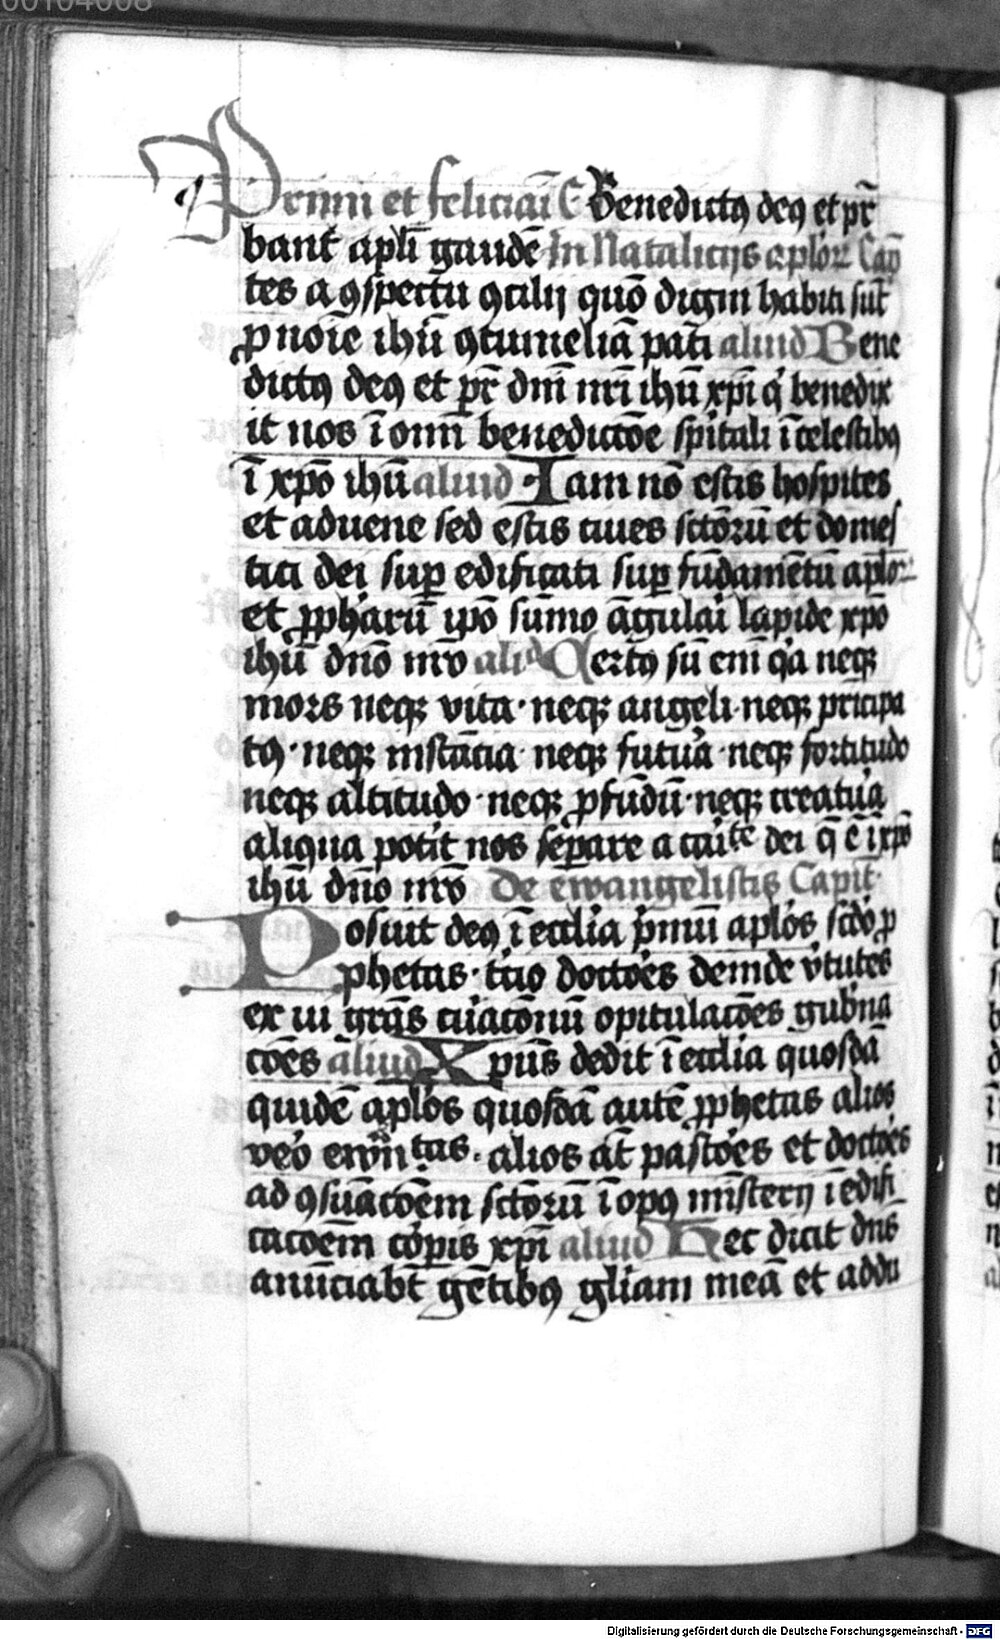 00104008
Primi et feliciāi C Benedictꝰ deꝰ et pr̄
bant apl̄i gaudē In Nataliciis aplōꝝ Cap̄
tes a ꝯspectu ꝯcilij quō digni habiti sūt
ꝓ noīe ihū ꝯtumeliā pati aliud Bene
dictꝰ deꝰ et pr̄ dnī nrī ihū xpī qͥ benedix
it nos ī omī benedictōe spītali ī celestibꝰ
ī xpō ihū aliud Iam nō estis hospites
et aduene sed estis ciues sctōꝝū et domes
tici dei suꝑ edificati suꝑ fūdamētū aplōꝝ
et ꝓpharū ipō sūmo āgulai lapide xpō
ihū dnō nrō alid Certꝰ sū enī qͥa neqꝫ
mors neqꝫ vita · neqꝫ angeli · neqꝫ prīcipa
tꝰ · neqꝫ instācia · neqꝫ futuᷓa · neqꝫ fortitudo
neqꝫ altitudo · neqꝫ ꝓfūdū · neqꝫ creatuᷓa
aliqua potit nos seꝑare a caite dei q̄ ē ī xpō
ihū dnō nrō De ewangelistis Capit
Posuit deꝰ ī ecclīa pͥmū aplōs scdō ꝓ
phetas · tͨio doctōes deinde vͥtutes
ex īn grās cuᷓacōnū opitulacōes gub̄na
cōes aliud Xpūs dedit ī ecclīa quosdā
quidē aplōs quosdā autē ꝓphetas alios
veō ewn̄tas · alios āt pastōes et doctōes
ad ꝯsūacōem sctōꝝū ī opꝰ mīsterij ī edifi
cacōem cōꝑis xpī aliud Hec dicit dn̄s
anūciabt̄ gētibꝰ glīam meā et addu
Digitalisierung gefördert durch die Deutsche Forschungsgemeinschaft - DFG